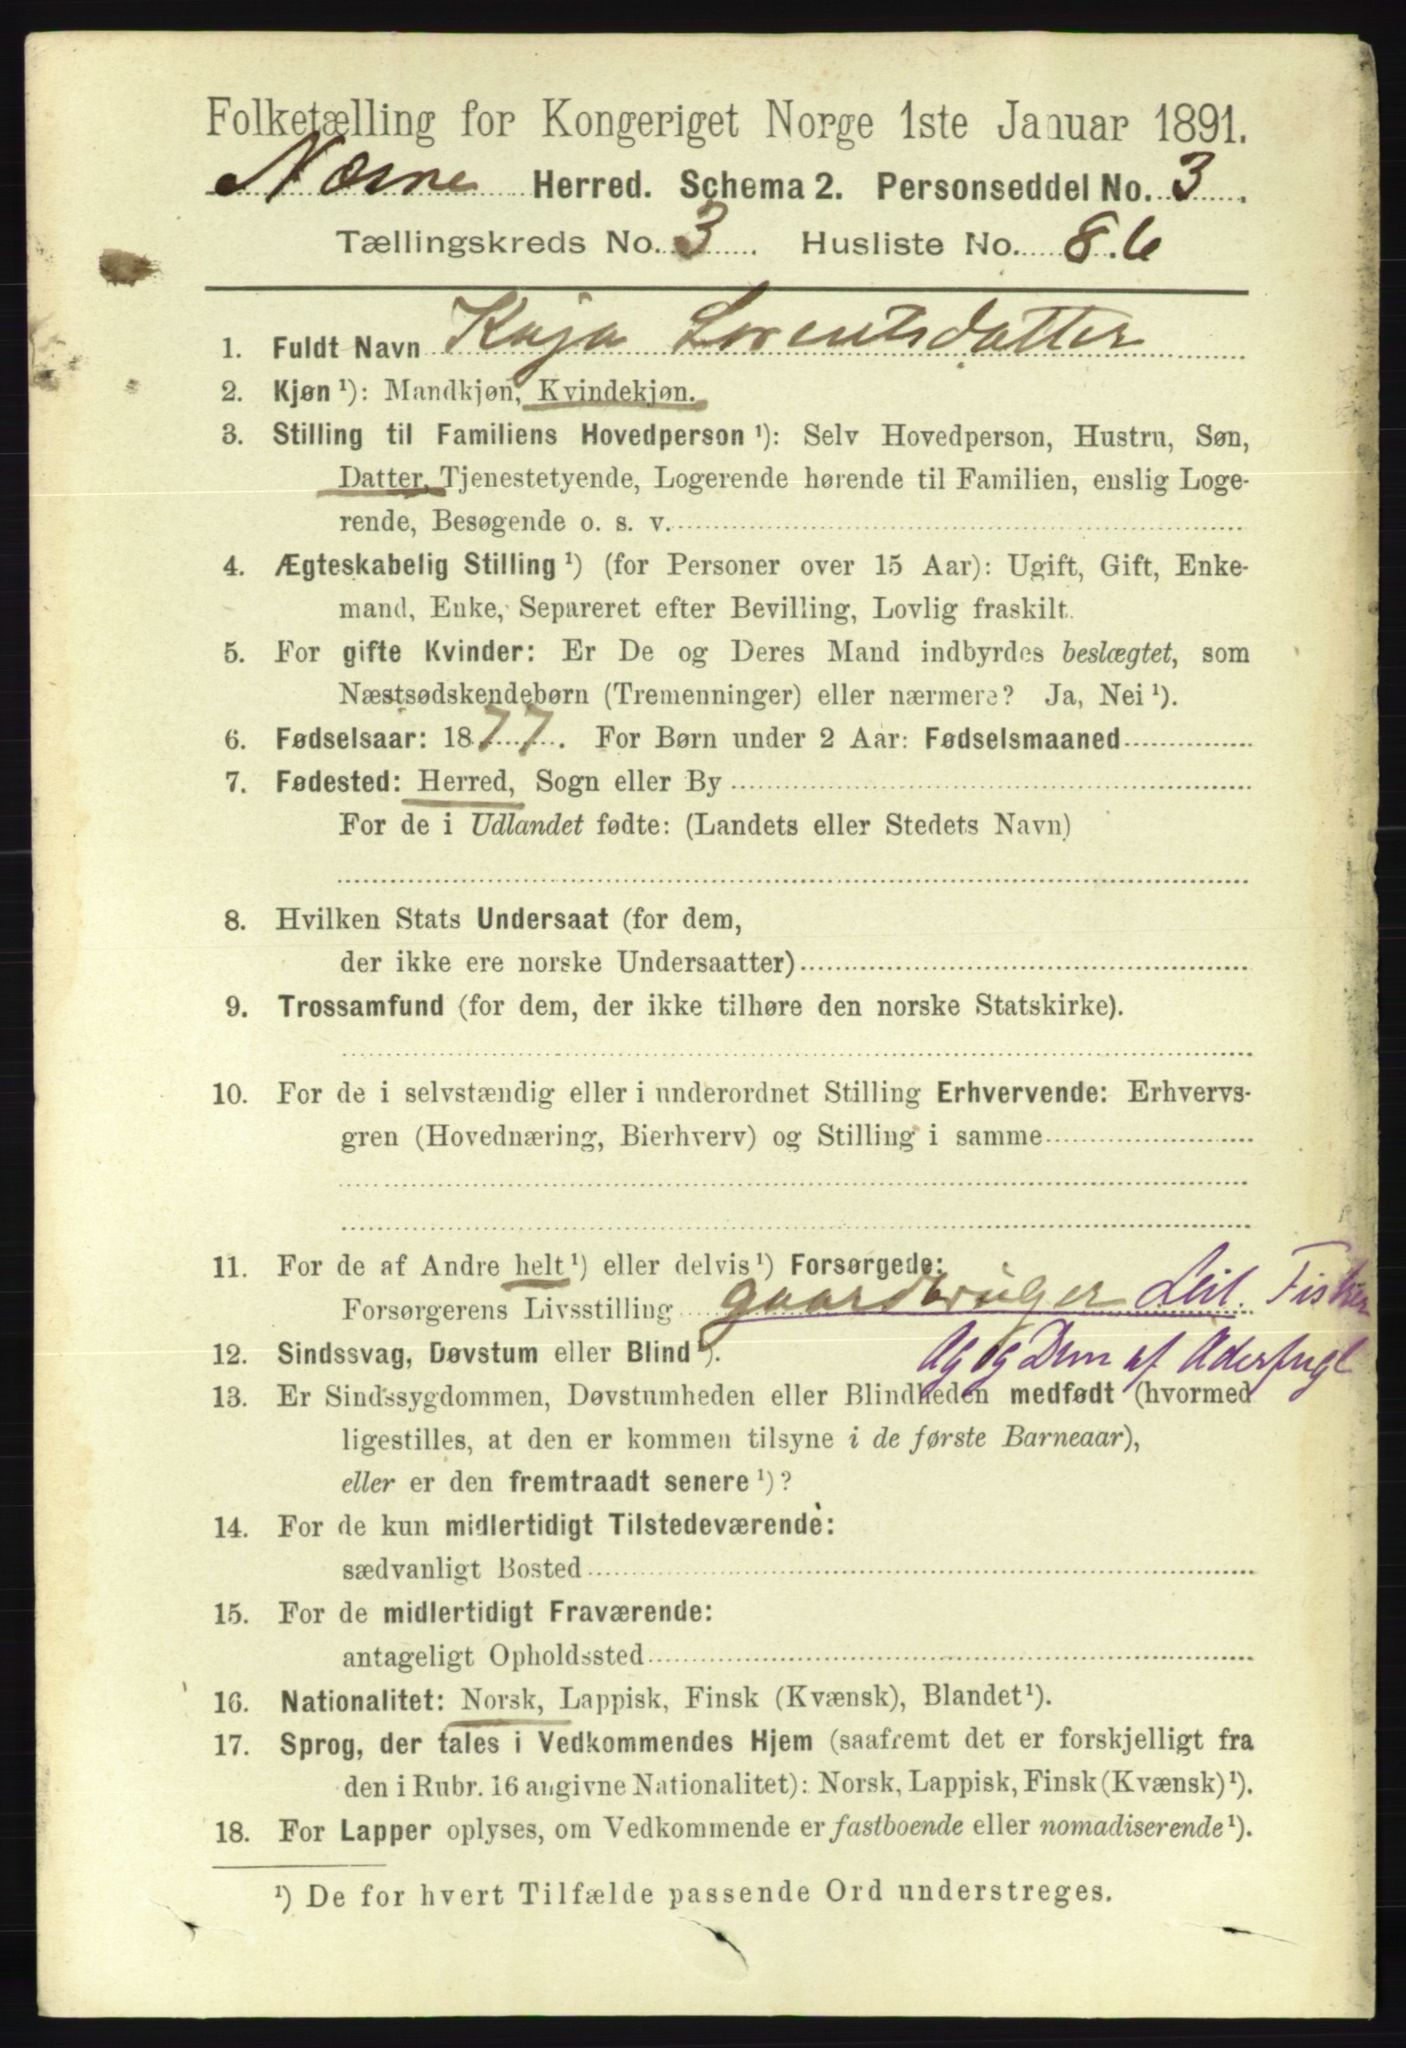 Folketælling for Kongeriget Norge 1ste Januar 1891.
Næsne Herred. Schema 2. Personseddel No. 3.
Tællingskreds No. 3. Husliste No. 86
1. Fuldt Navn Kaja Lorentsdatter
2. Kjøn ¹): Mandkjøn, Kvindekjøn.
3. Stilling til Familiens Hovedperson ¹): Selv Hovedperson, Hustru, Søn,
Datter, Tjenestetyende, Logerende hørende til Familien, enslig Loge-
rende, Besøgende o. s. v.
4. Ægteskabelig Stilling ¹) (for Personer over 15 Aar): Ugift, Gift, Enke-
mand, Enke, Separeret efter Bevilling, Lovlig fraskilt.
5. For gifte Kvinder: Er De og Deres Mand indbyrdes beslægtet, som
Næstsødskendebørn (Tremenninger) eller nærmere? Ja, Nei ¹).
6. Fødselsaar: 1877. For Børn under 2 Aar: Fødselsmaaned
7. Fødested: Herred, Sogn eller By
For de i Udlandet fødte: (Landets eller Stedets Navn)
8. Hvilken Stats Undersaat (for dem,
der ikke ere norske Undersaatter)
9. Trossamfund (for dem, der ikke tilhøre den norske Statskirke).
10. For de i selvstændig eller i underordnet Stilling Erhvervende: Erhvervs-
gren (Hovednæring, Bierhverv) og Stilling i samme
11. For de af Andre helt ¹) eller delvis ¹) Forsørgede:
Forsørgerens Livsstilling gaardbruger Leil. Fisker
12. Sindssvag, Døvstum eller Blind ¹). Ag og Dun af Aderfugl
13. Er Sindssygdommen, Døvstumheden eller Blindheden medfødt (hvormed
ligestilles, at den er kommen tilsyne i de første Barneaar),
eller er den fremtraadt senere ¹)?
14. For de kun midlertidigt Tilstedeværende:
sædvanligt Bosted
15. For de midlertidigt Fraværende:
antageligt Opholdssted
16. Nationalitet: Norsk, Lappisk, Finsk (Kvænsk), Blandet ¹).
17. Sprog, der tales i Vedkommendes Hjem (saafremt det er forskjelligt fra
den i Rubr. 16 angivne Nationalitet): Norsk, Lappisk, Finsk (Kvænsk) ¹).
18. For Lapper oplyses, om Vedkommende er fastboende eller nomadiserende ¹).
¹) De for hvert Tilfælde passende Ord understreges.